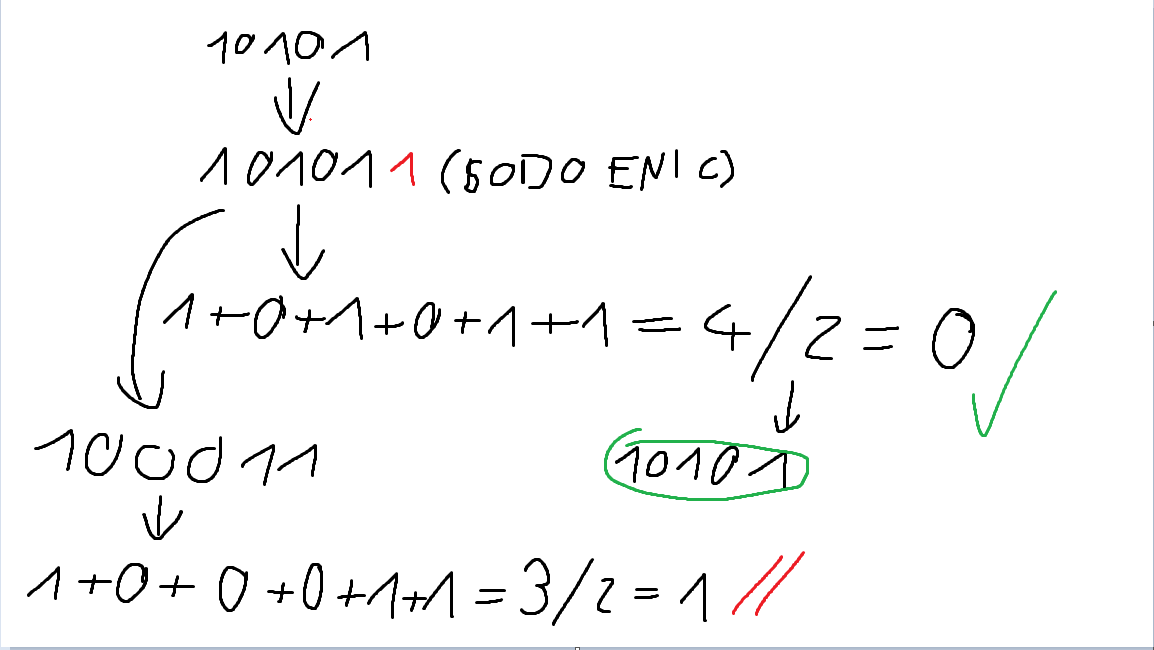 10101
101011 (SODO ENIC)
1+0+1+0+1+1=4/2=0
100011
10101
1+0+0+0+1+1=3/2=1